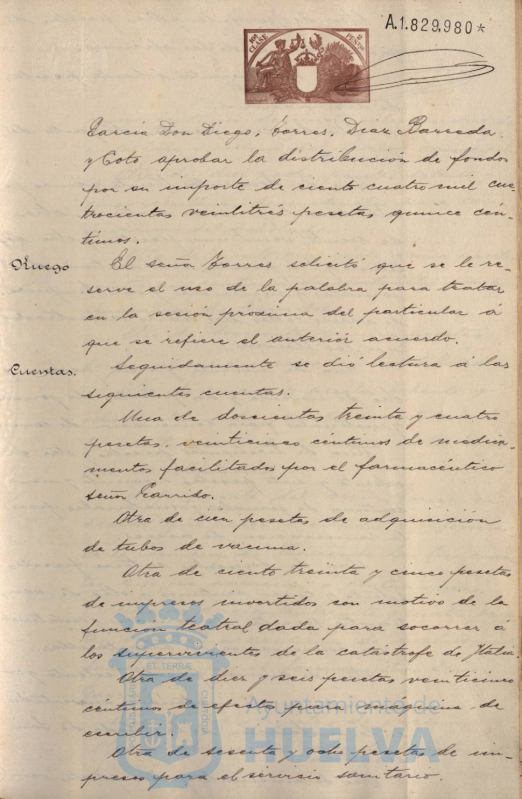 A.1.829,980*
10ª CLASE 2 PESETAS
Garcia Don Diego, Torres, Diaz Barreda
y Coto aprobar la distribución de fondos
por su importe de ciento cuatro mil cua-
trocientas veintitrés pesetas quince cén-
timos.
Ruego
El señor Torres solicitó que se le re-
serve el uso de la palabra para tratar
en la sesión próxima del particular á
que se refiere el anterior acuerdo.
Cuentas.
Seguidamente se dió lectura á las
siguientes cuentas.
Una de doscientas treinta y cuatro
pesetas, veinticinco céntimos de medica-
mentos facilitados por el farmacéutico
señor Garrido.
Otra de cien pesetas de adquisición
de tubos de vacuna.
Otra de ciento treinta y cinco pesetas
de impresos invertidos con motivo de la
función teatral dada para socorrer á
los supervivientes de la catástrofe de Italia.
Otra de diez y seis pesetas veinticinco
céntimos de efectos para la maquina de
escribir.
Otra de sesenta y ocho pesetas de im-
presos para el servicio sanitario.
Ayuntamiento de
HUELVA